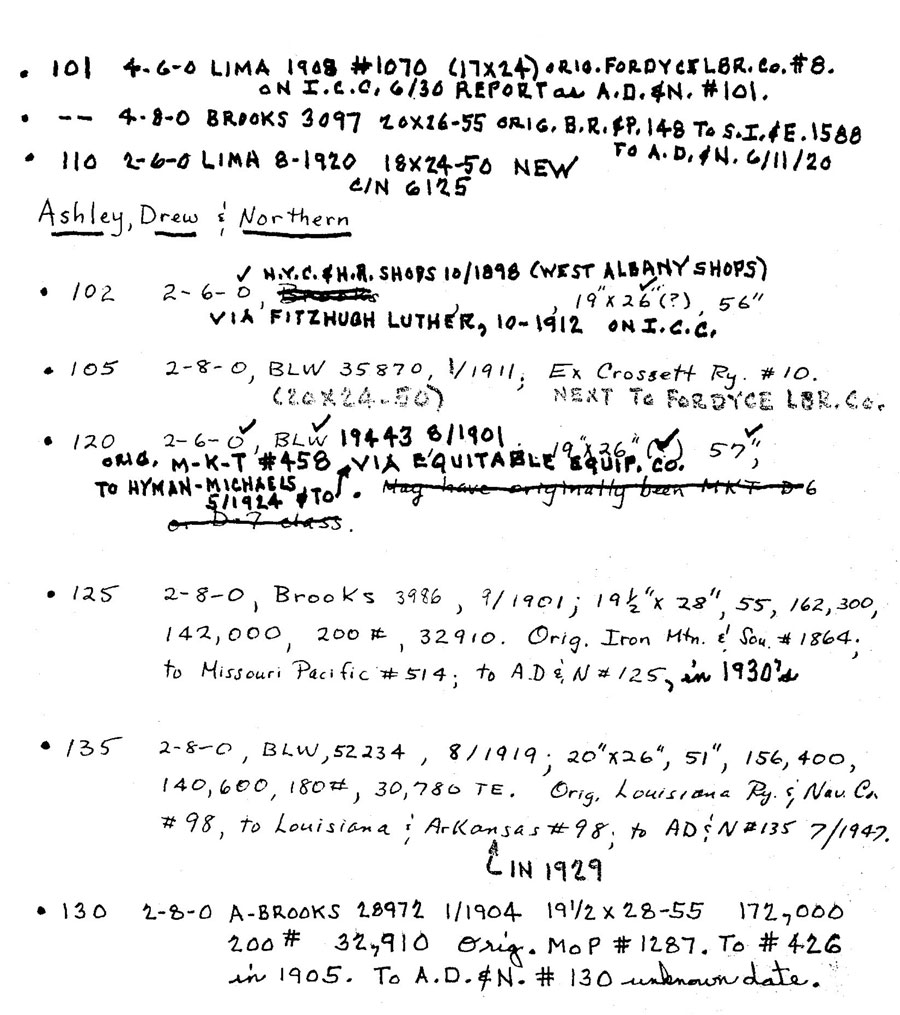 • 101 4-6-0 LIMA 1908 #1070 (17X24) ORIG. FORDYCE LBR. Co. #8.
ON I.C.C. 6/30 REPORT as A.D.&N. #101.
• -- 4-8-0 BROOKS 3097 20X26-55 ORIG. B.R.&P. 148 TO S.I.&E. 1588
TO A.D.&N. 6/11/20
• 110 2-6-0 LIMA 8-1920 18X24-50 NEW
C/N 6125
Ashley, Drew & Northern
✓ N.Y.C. & H.R. SHOPS 10/1898 (WEST ALBANY SHOPS)
• 102 2-6-0, Brooks , , 19"x 26"(?), 56"
VIA FITZHUGH LUTHER, 10-1912 ON I.C.C.
• 105 2-8-0, BLW 35870, 1/1911; Ex Crossett Ry. #10.
(20X24-50) NEXT TO FORDYCE LBR. Co.
• 120 2-6-0, BLW 19443 8/1901 19"x 26" (✓) 57",
ORIG. M-K-T #458 VIA EQUITABLE EQUIP. CO.
TO HYMAN-MICHAELS
5/1924 & TO . May have originally been MKT D-6
or D-7 class.
• 125 2-8-0, Brooks 3986, 9/1901; 19½"x 28", 55, 162,300,
142,000, 200#, 32910. Orig. Iron Mtn. & Sou. #1864;
to Missouri Pacific #514; to A.D & N #125, in 1930's
• 135 2-8-0, BLW, 52234, 8/1919; 20"x26", 51", 156,400,
140,600, 180#, 30,780 TE. Orig. Louisiana Ry. & Nav. Co.
#98, to Louisiana & Arkansas #98; to AD&N #135 7/1947.
IN 1929
• 130 2-8-0 A-BROOKS 28972 1/1904 19 1/2 x 28-55 172,000
200# 32,910 Orig. MoP #1287. To #426
in 1905. To A.D.&N. #130 unknown date.